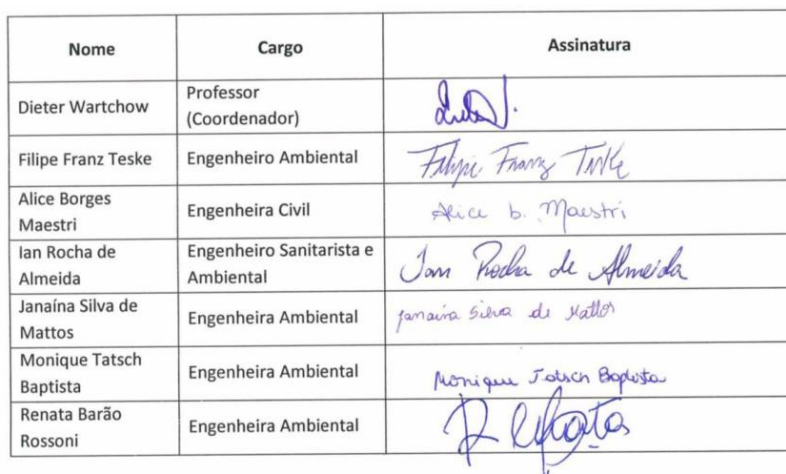 Nome Cargo Assinatura
Dieter Wartchow Professor
(Coordenador)
Filipe Franz Teske Engenheiro Ambiental Filipe Franz Teske
Alice Borges
Maestri Engenheira Civil Alice b. Maestri
Ian Rocha de
Almeida Engenheiro Sanitarista e
Ambiental Ian Rocha de Almeida
Janaína Silva de
Mattos Engenheira Ambiental Janaína Silva de Mattos
Monique Tatsch
Baptista Engenheira Ambiental Monique Tatsch Baptista
Renata Barão
Rossoni Engenheira Ambiental Renata